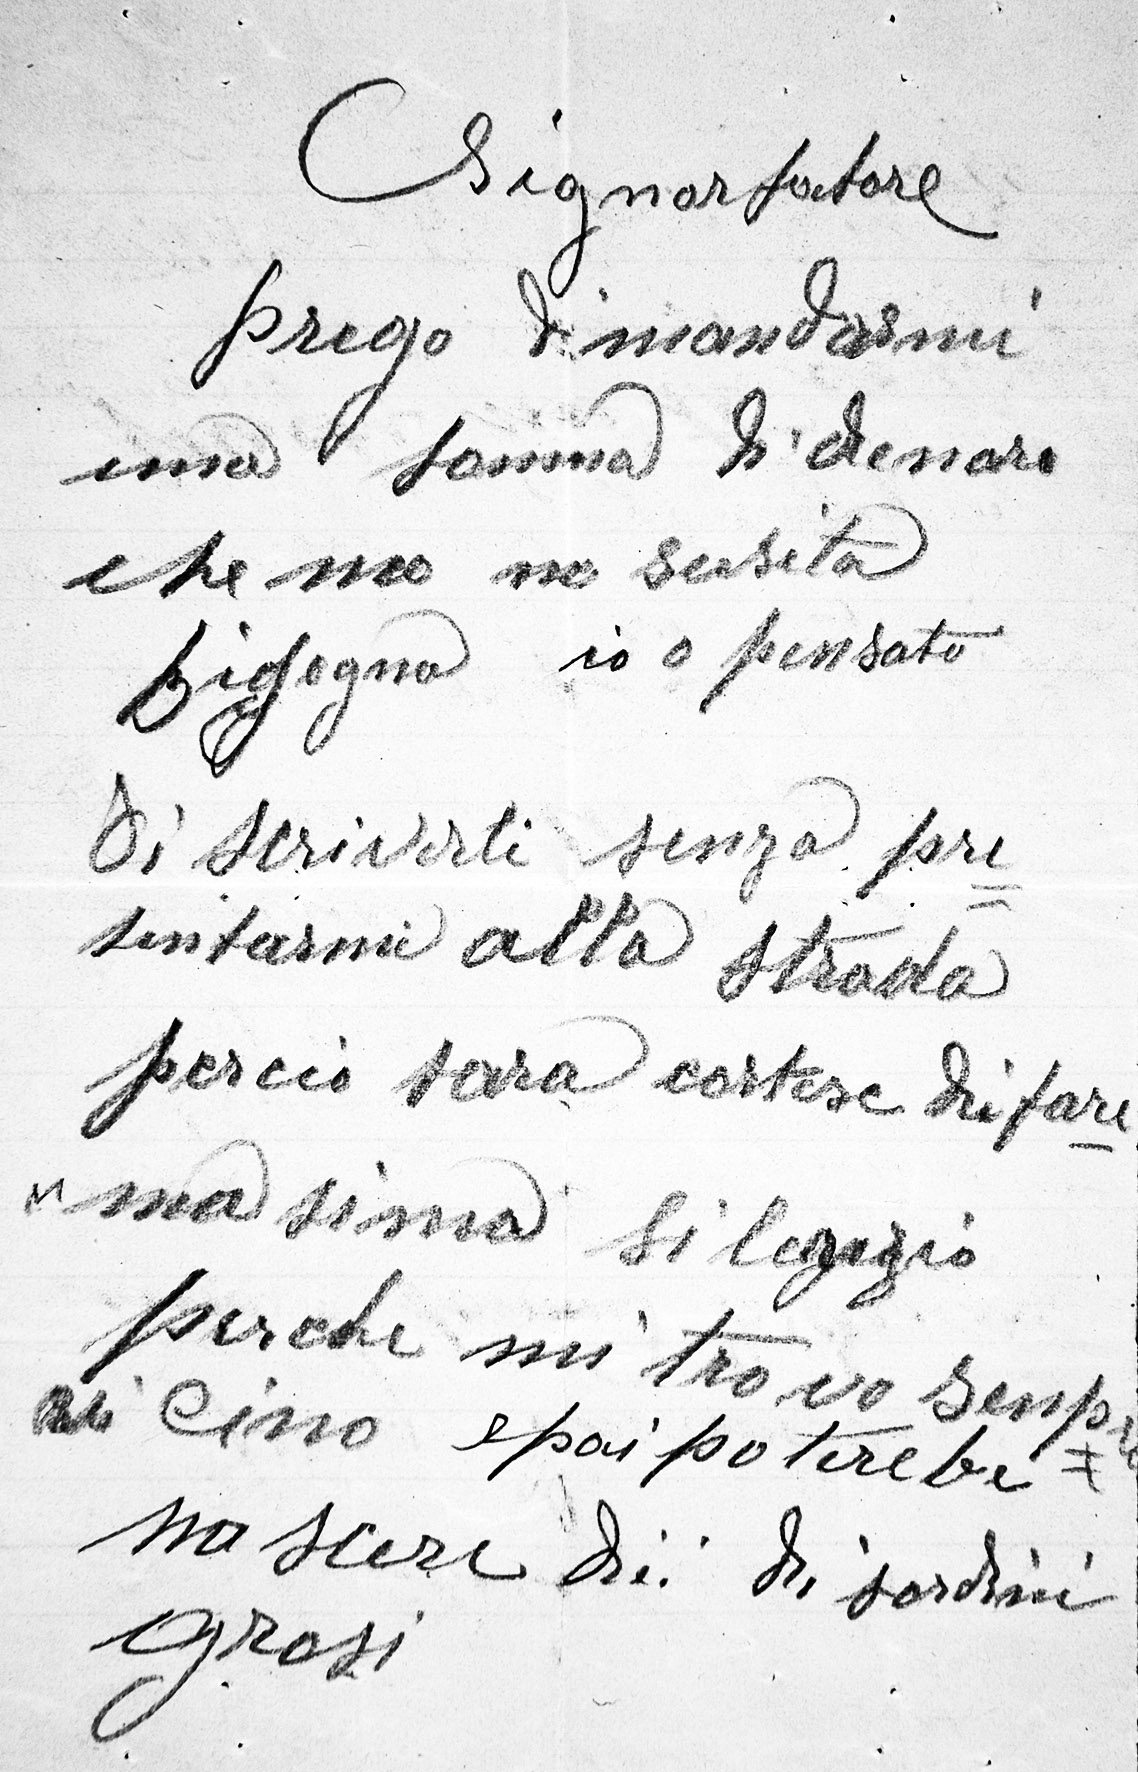 Signor fatore
prego di mandarmi
una somma di denaro
che me ne susita
bisogna io o pensato
di scriverti senza pre=
sentarmi alla strada
percio sara cortese di fare
masima silenzio
perche mi trovo senpre
vicino e poi poterebe
nascere dei disordini
grosi